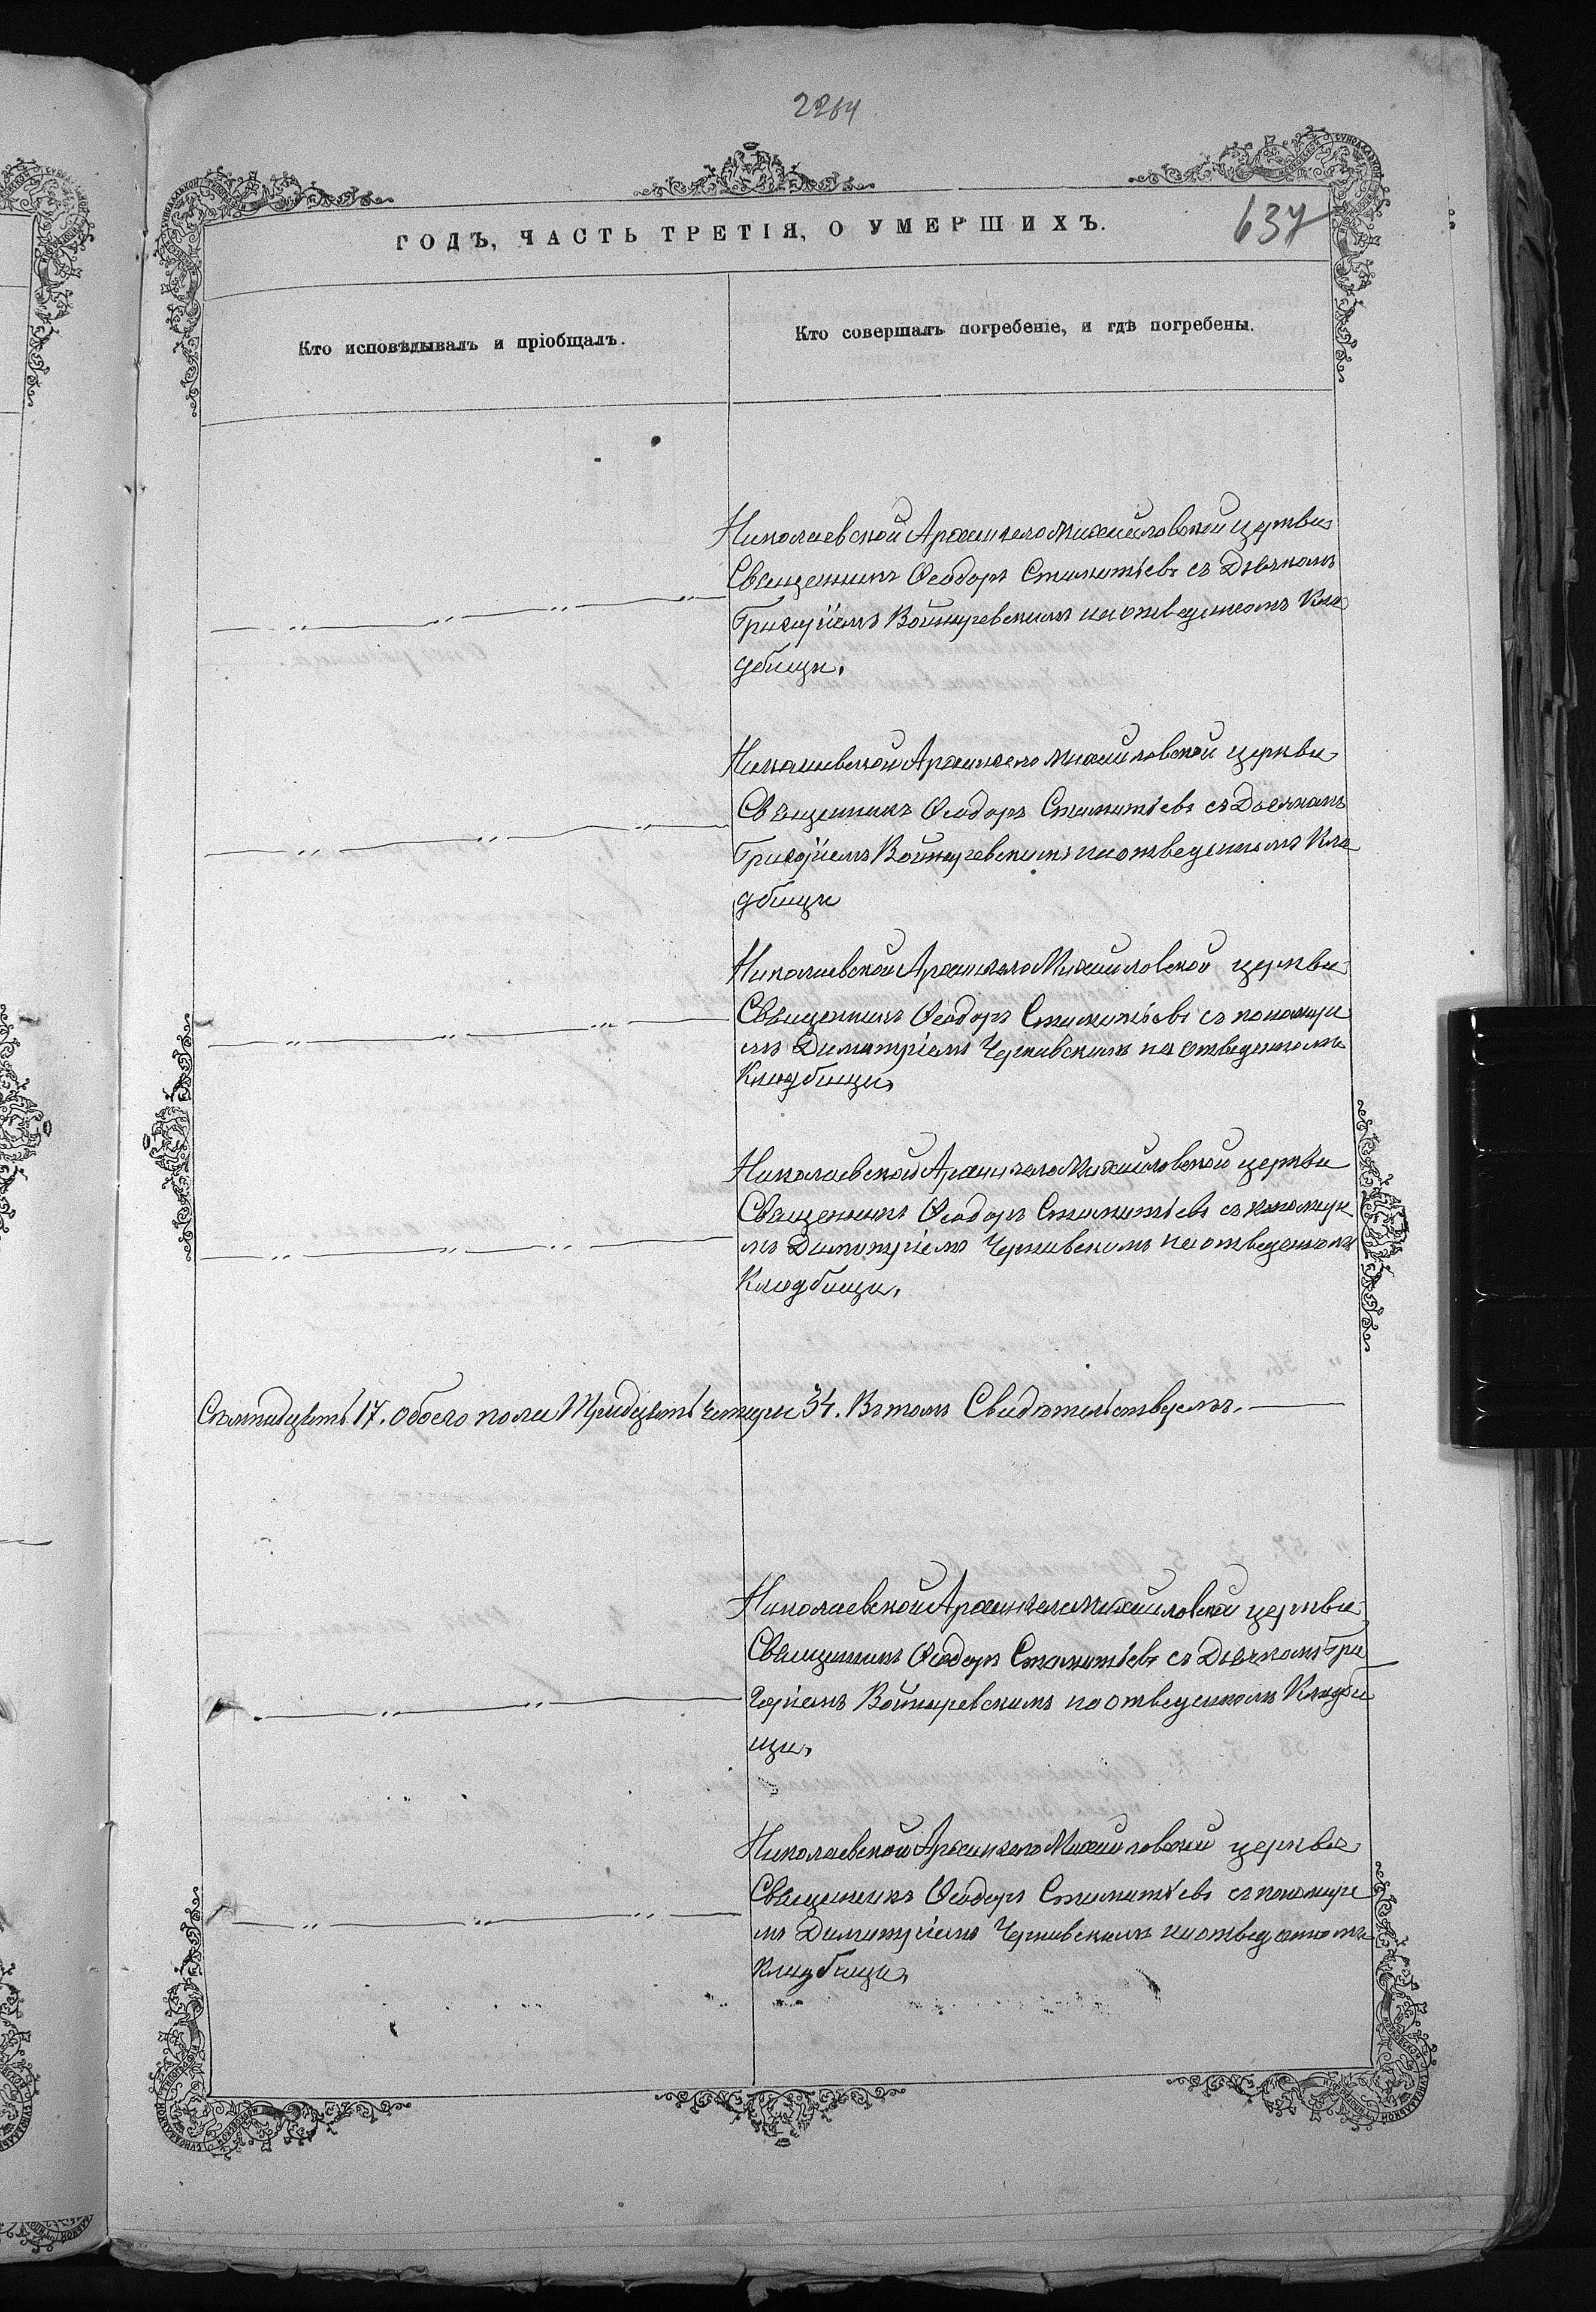 2264
637
ГОДЪ, ЧАСТЬ ТРЕТІЯ, О УМЕРШИХЪ.
Кто исповѣдывалъ и пріобщалъ.
Кто совершалъ погребеніе, и гдѣ погребены.
Николаевской Архангело Михайловской церкви
Священникъ Ѳеодоръ Стаматьевъ съ Дьячкомъ
Григоріемъ Войнаревскимъ на отведенномъ Кла
дбищи.
Николаевской Архангело Михайловской церкви
Священникъ Ѳеодоръ Стаматьевъ съ Дьячкомъ
Григоріемъ Войнаревскимъ на отведенномъ Кла
дбищи
Николаевской Архангело Михайловской церкви
Священникъ Ѳеодоръ Стаматьевъ съ пономаре
мъ Димитріемъ Чернявскимъ на отведенномъ
Кладбищи,
Николаевской Архангело Михайловской церкви
Священникъ Ѳеодоръ Стаматьевъ съ пономаре
мъ Димитріемъ Чернявскимъ на отведенномъ
Кладбищи,
Семнадцать 17. обоего пола Тридцать четыри 34. Въ томъ Свидѣтельствуемъ.
Николаевской Архангело Михайловской церкви
Священникъ Ѳеодоръ Стаматьевъ съ Дьячкомъ Гри
горіемъ Войнаревскимъ на отведенномъ Кладби
щи,
Николаевской Архангело Михайловской церкви
Священникъ Ѳеодоръ Стаматьевъ съ пономаре
мъ Димитріемъ Чернявскимъ на отведенномъ
Кладбищи,